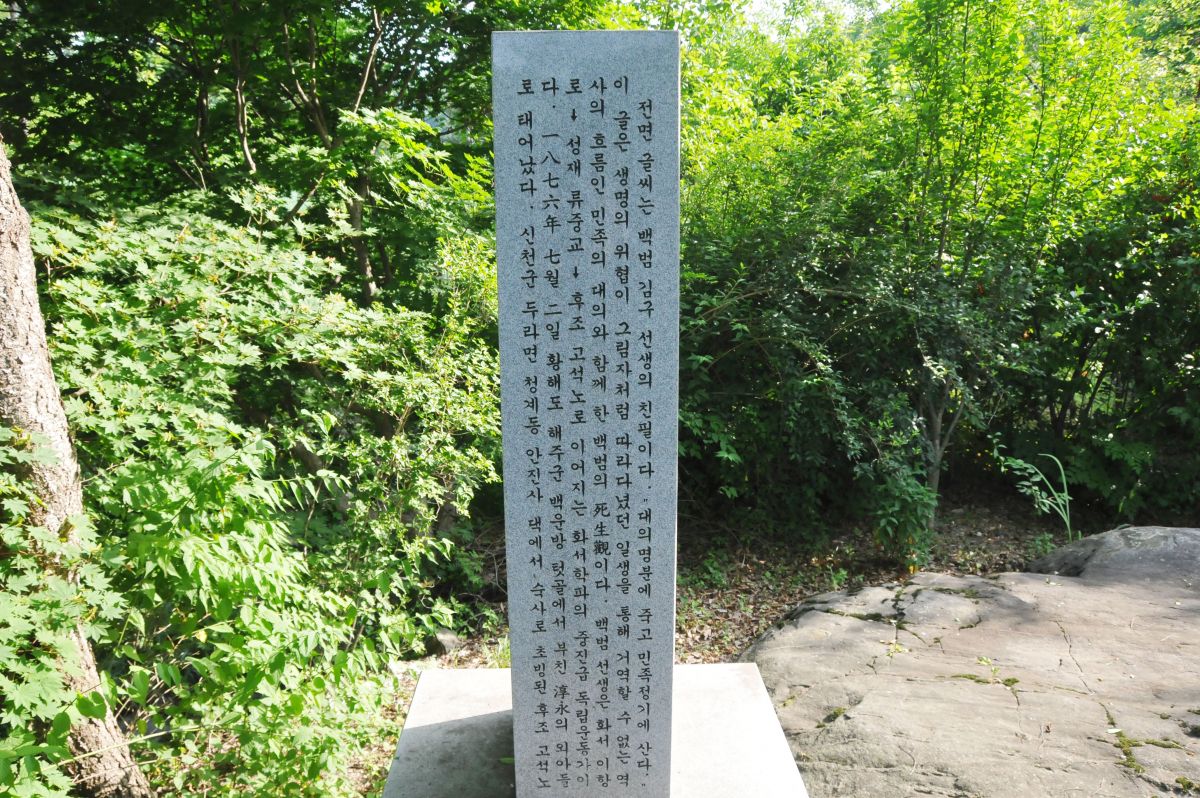 전면 글씨는 백범 김구 선생의 친필이다. "대의명분에 죽고 민족정기에 산다."
이 글은 생명의 위협이 그림자처럼 따라다녔던 일생을 통해 거역할 수 없는 역
사의 흐름인 민족의 대의와 함께 한 백범의 死生觀이다. 백범 선생은 화서 이항
로→성재 류중교→후조 고석노로 이어지는 화서학파의 중진급 독립운동가이
다. 一八七六年 七월 二일 황해도 해주군 백운방 텃골에서 부친 淳永의 외아들
로 태어났다. 신천군 두라면 청계동 안진사 댁에서 숙사로 초빙된 후조 고석노